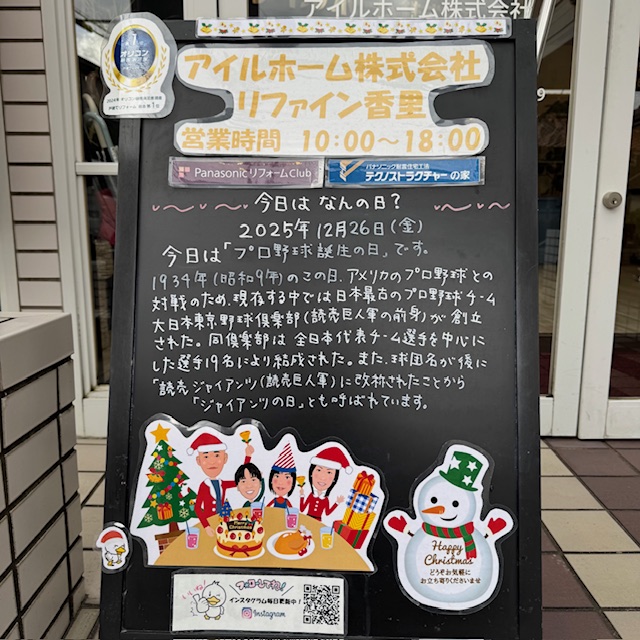 アイルホーム株式会社
オリコン
第1位
アイルホーム株式会社
リファイン香里
営業時間 10:00～18:00
Panasonic リフォームClub
パナソニック耐震住宅工法
テクノストラクチャーの家
今日は なんの日？
2025年 12月26日(金)
今日は「プロ野球誕生の日」です。
1934年(昭和9年)のこの日、アメリカのプロ野球との
対戦のため、現存する中では日本最古のプロ野球チーム
大日本東京野球倶楽部(読売巨人軍の前身)が創立
された。同倶楽部は全日本代表チーム選手を中心に
した選手19名により結成された。また、球団名が後に
「読売ジャイアンツ(読売巨人軍)に改称されたことから
「ジャイアンツの日」とも呼ばれています。
Merry Christmas
Happy
Christmas
どうぞお気軽に
お立ち寄りくださいませ
フォローしてね！
インスタグラム毎日更新中！
Instagram